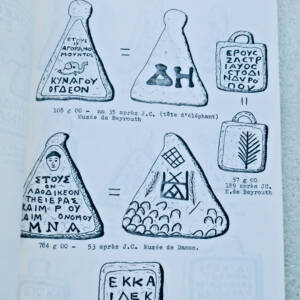 ΕΤΟΥΣ
ΑΓΟΡΑΝΟ
ΜΟΥΝΤΟΣ
ΚΥΝΑΓΟΥ
ΟΓΔΕΟΝ
=
ΔΗ
ΕΡΟΥΣ
ΖΛΣΤΡ
ΙΑΥΟΣ
ΕΤΟΔΙ
ΝΔΥΡΟ
ΠΟΥ
108 g 00 - an 35 après J.C. (tête d'éléphant)
Musée de Beyrouth
=
57 g 00
189 après JC.
M.de Beyrouth
ΣΤΟΥΣ
ΛΑΟΔΙΚΕΟΝ
ΤΗΕΙΕΡΑΣ
ΜΝΑ
=
784 g 00 - 53 après J.C. Musée de Damas.
ΕΚΚΑ
ΙΔΕΚ